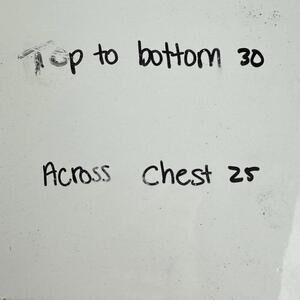 Top to bottom 30
Across Chest 25